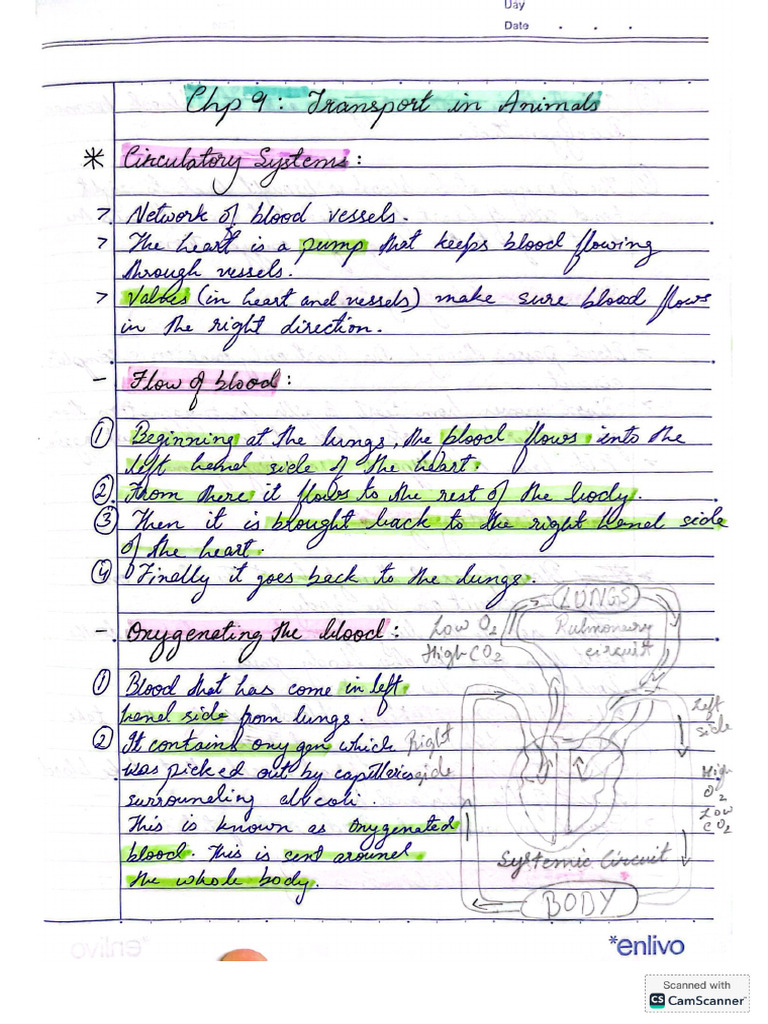 Day
Date
Chp 9: Transport in Animals
* Circulatory Systems:
> Network of blood vessels.
> The heart is a pump that keeps blood flowing
through vessels.
> Valves (in heart and vessels) make sure blood flows
in the right direction.
- Flow of blood:
① Beginning at the lungs, the blood flows into the
left hand side of the heart.
② From there it flows to the rest of the body.
③ Then it is brought back to the right hand side
of the heart.
④ Finally it goes back to the lungs.
LUNGS
Pulmonary
circuit
Low O2
High CO2
- Oxygenating the blood:
① Blood that has come in left
hand side from lungs.
② It contains oxygen which
was picked out by capillaries
surrounding alveoli.
This is known as oxygenated
blood. This is sent around
the whole body.
Right
side
Left
side
High
O2
Low
CO2
Systemic Circuit
BODY
*enlivo
Scanned with
CS CamScanner